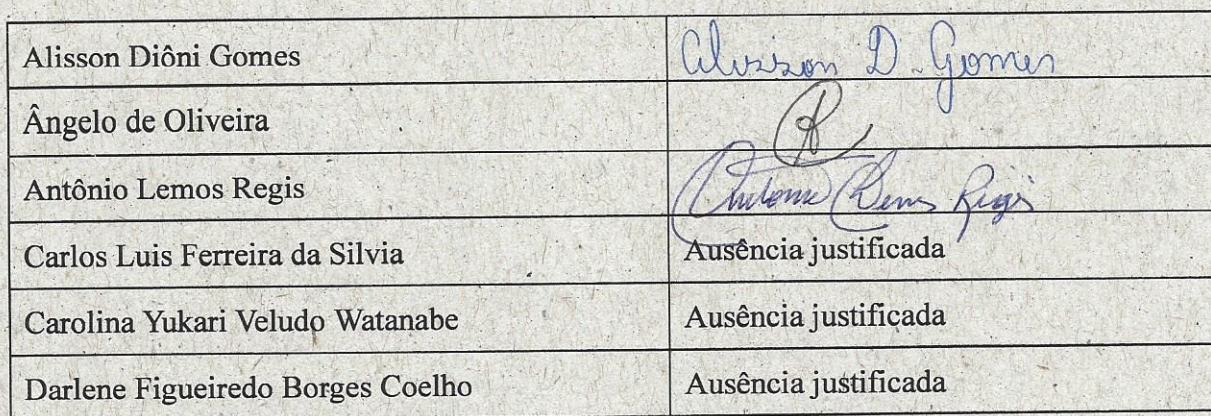 Alisson Diôni Gomes Alisson D. Gomes
Ângelo de Oliveira
Antônio Lemos Regis Antonio Lemos Regis
Carlos Luis Ferreira da Silvia Ausência justificada
Carolina Yukari Veludo Watanabe Ausência justificada
Darlene Figueiredo Borges Coelho Ausência justificada